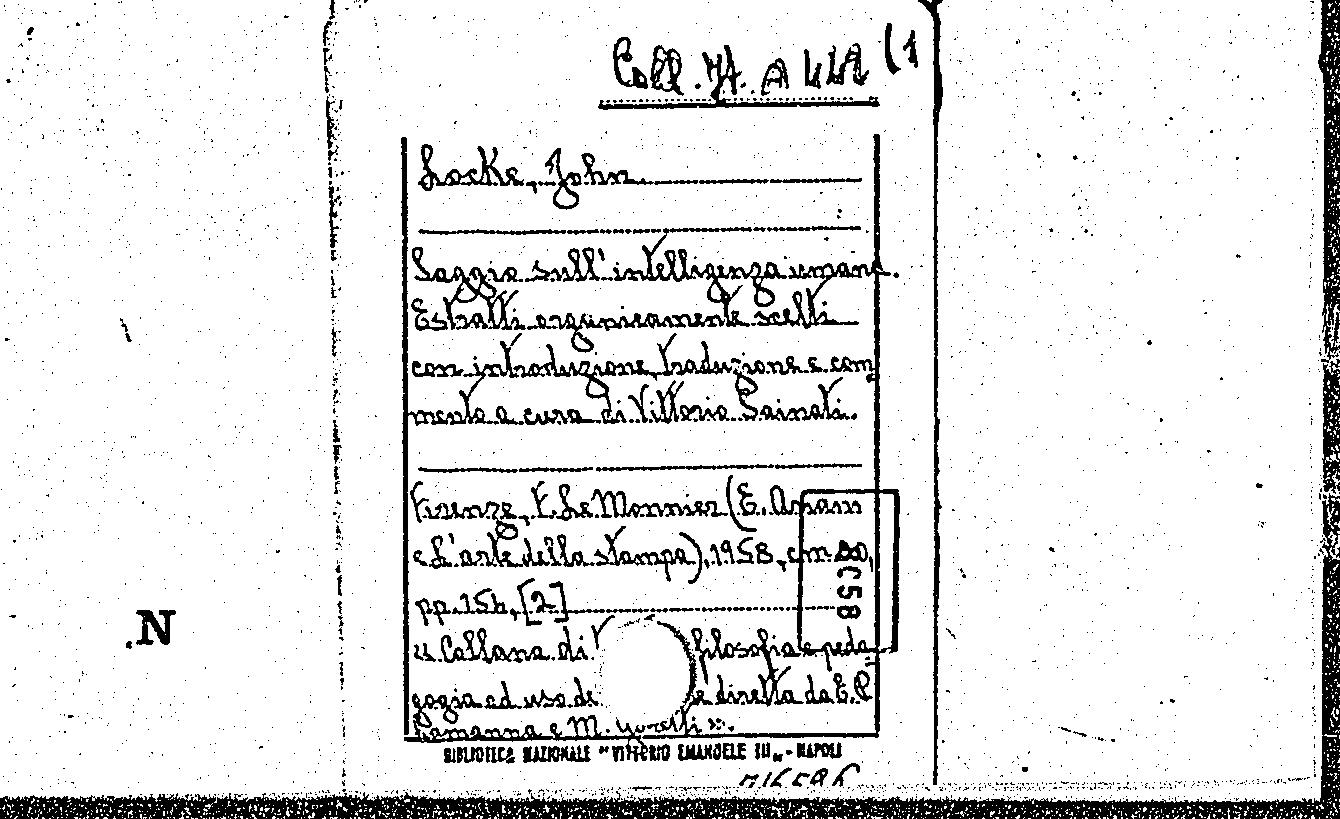 Coll. It. A 442 (1
Locke, John.
Saggio sull'intelligenza umana.
Estratti organicamente scelti
con introduzione, traduzione e com
mento a cura di Vittorio Sainati.
Firenze, F. Le Monnier (E. Ariani
e L'arte della stampa), 1958, cm. 20,
pp. 156, [2]
C58
« Collana di filosofia e peda-
N
gogia ad uso de diretta da E. P.
Lamanna e M. Goretti ».
BIBLIOTECA NAZIONALE "VITTORIO EMANUELE III" - NAPOLI